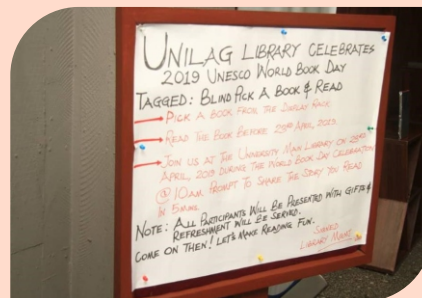 UNILAG LIBRARY CELEBRATES
2019 UNESCO WORLD BOOK DAY
TAGGED: BLIND PICK A BOOK & READ
PICK A BOOK FROM THE DISPLAY RACK
READ THE BOOK BEFORE 23RD APRIL, 2019.
JOIN US AT THE UNIVERSITY MAIN LIBRARY ON 23RD
APRIL, 2019 DURING THE WORLD BOOK DAY CELEBRATION
@ 10AM PROMPT TO SHARE THE STORY YOU READ
IN 5MINS.
NOTE: ALL PARTICIPANTS WILL BE PRESENTED WITH GIFTS &
REFRESHMENT WILL BE SERVED.
COME ON THEN! LET'S MAKE READING FUN.
SIGNED
LIBRARY